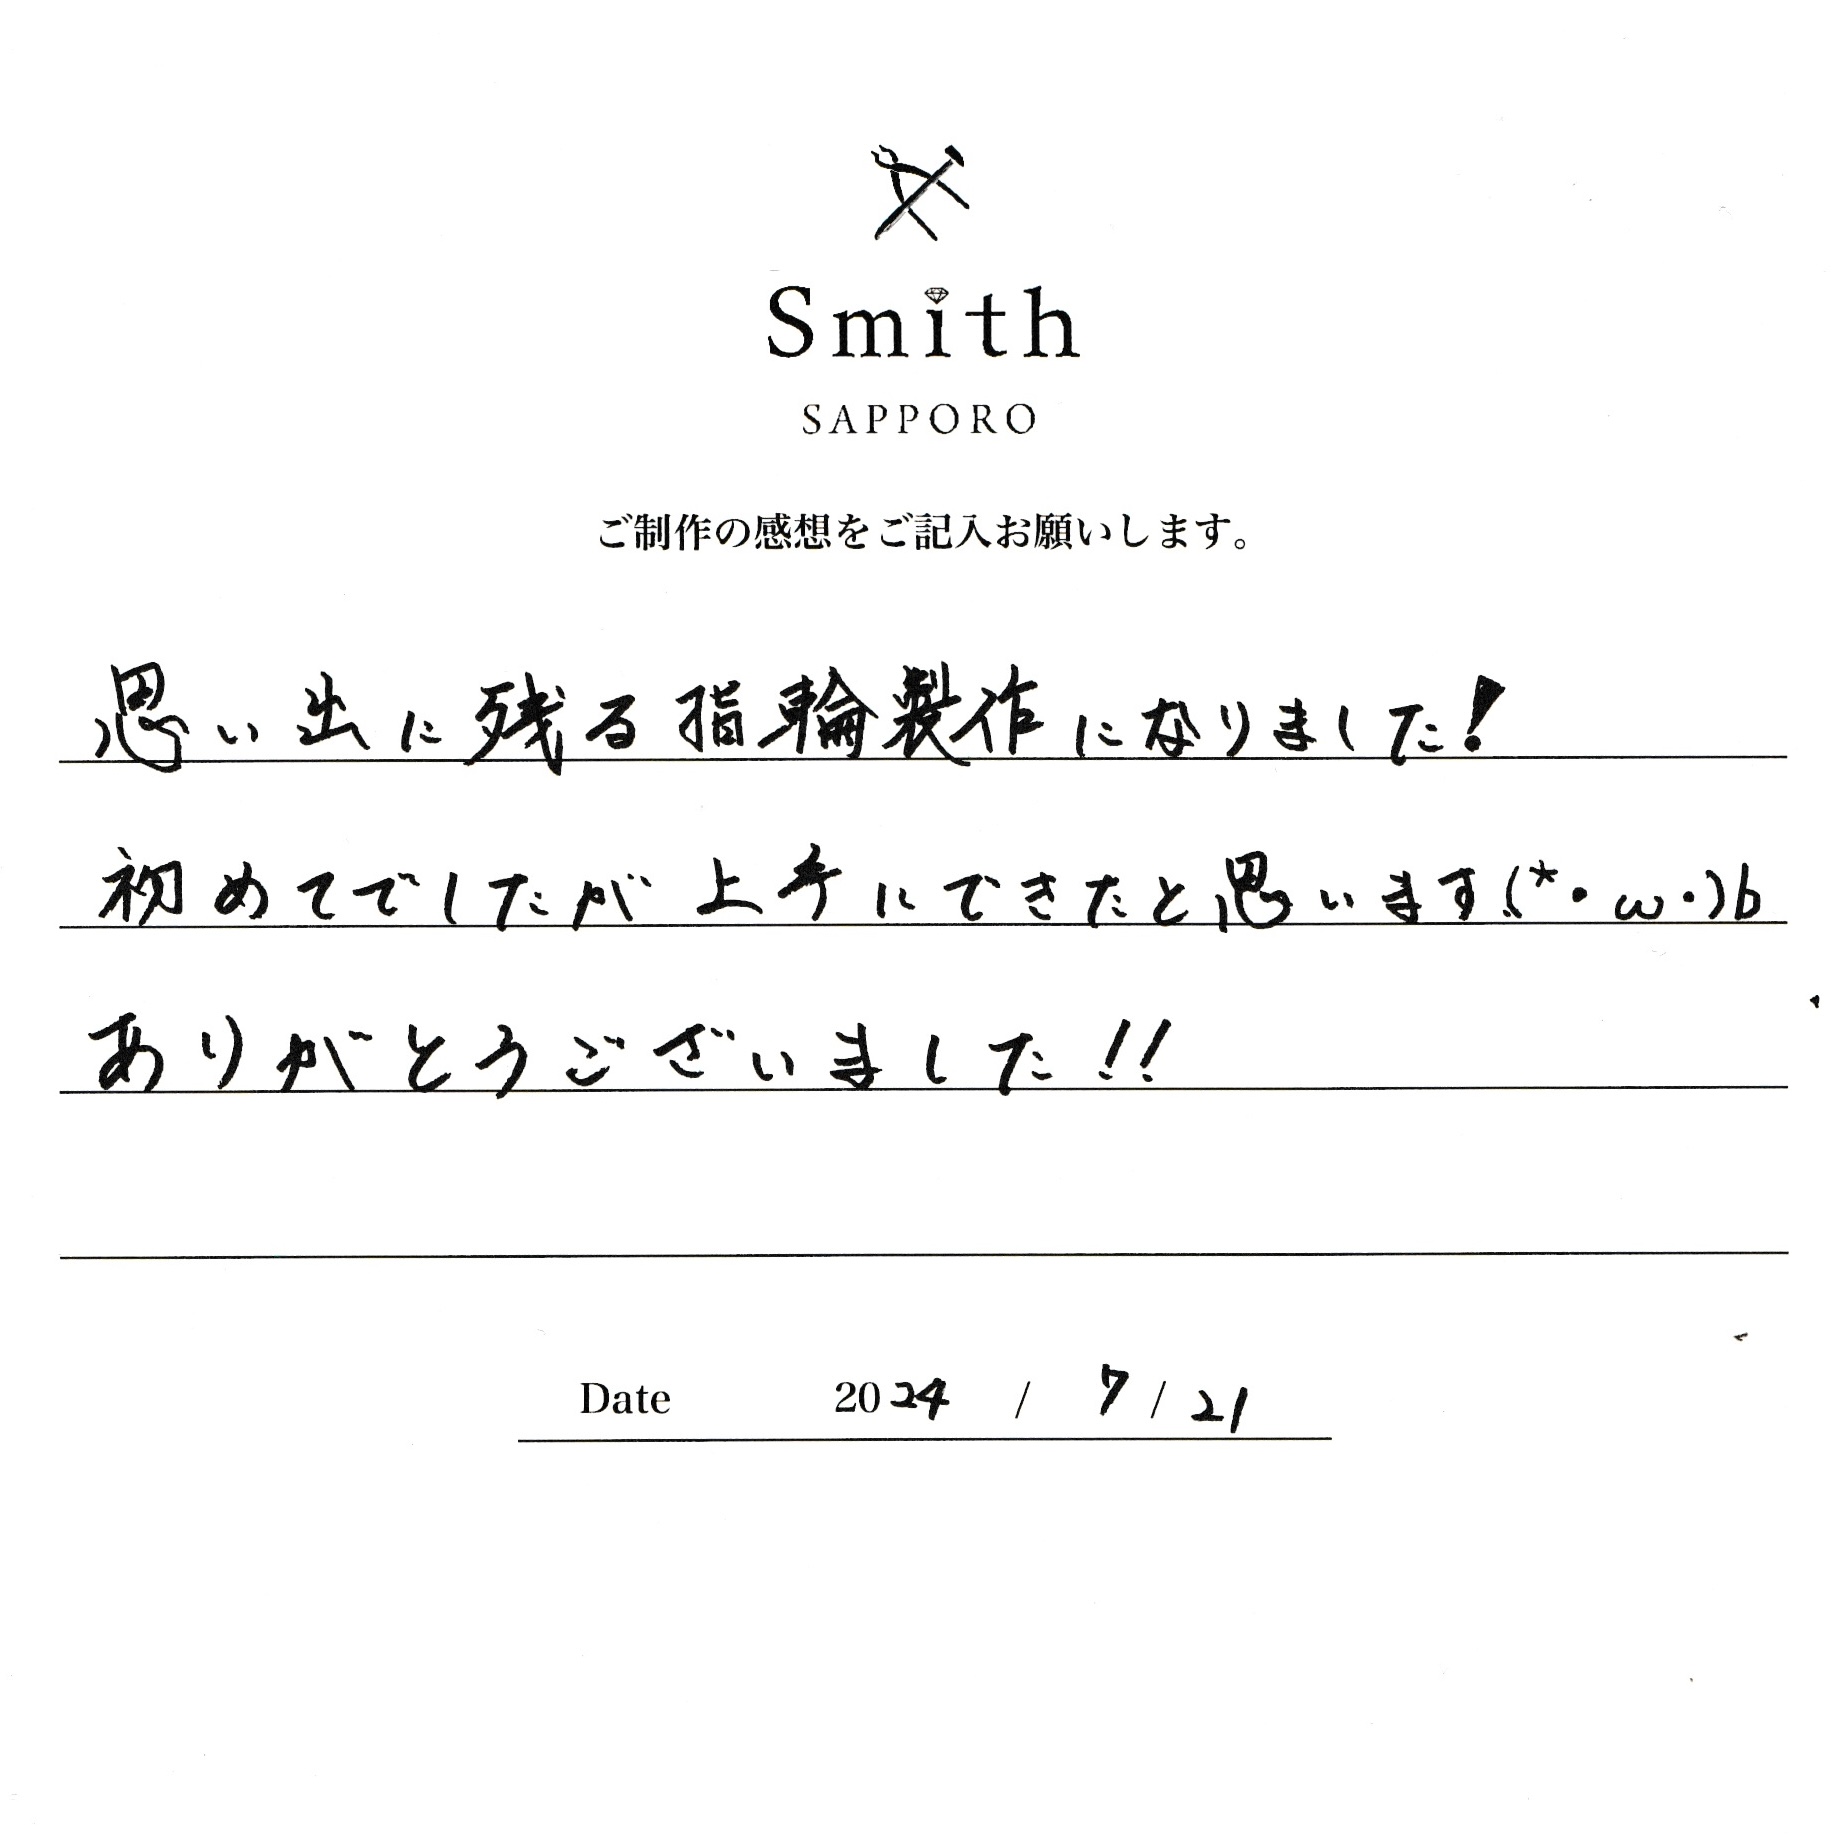 Smith
SAPPORO
ご制作の感想をご記入お願いします。
思い出に残る指輪製作になりました!
初めてでしたが上手にできたと思います(*・ω・)b
ありがとうございました!!
Date 2024 / 7 / 21